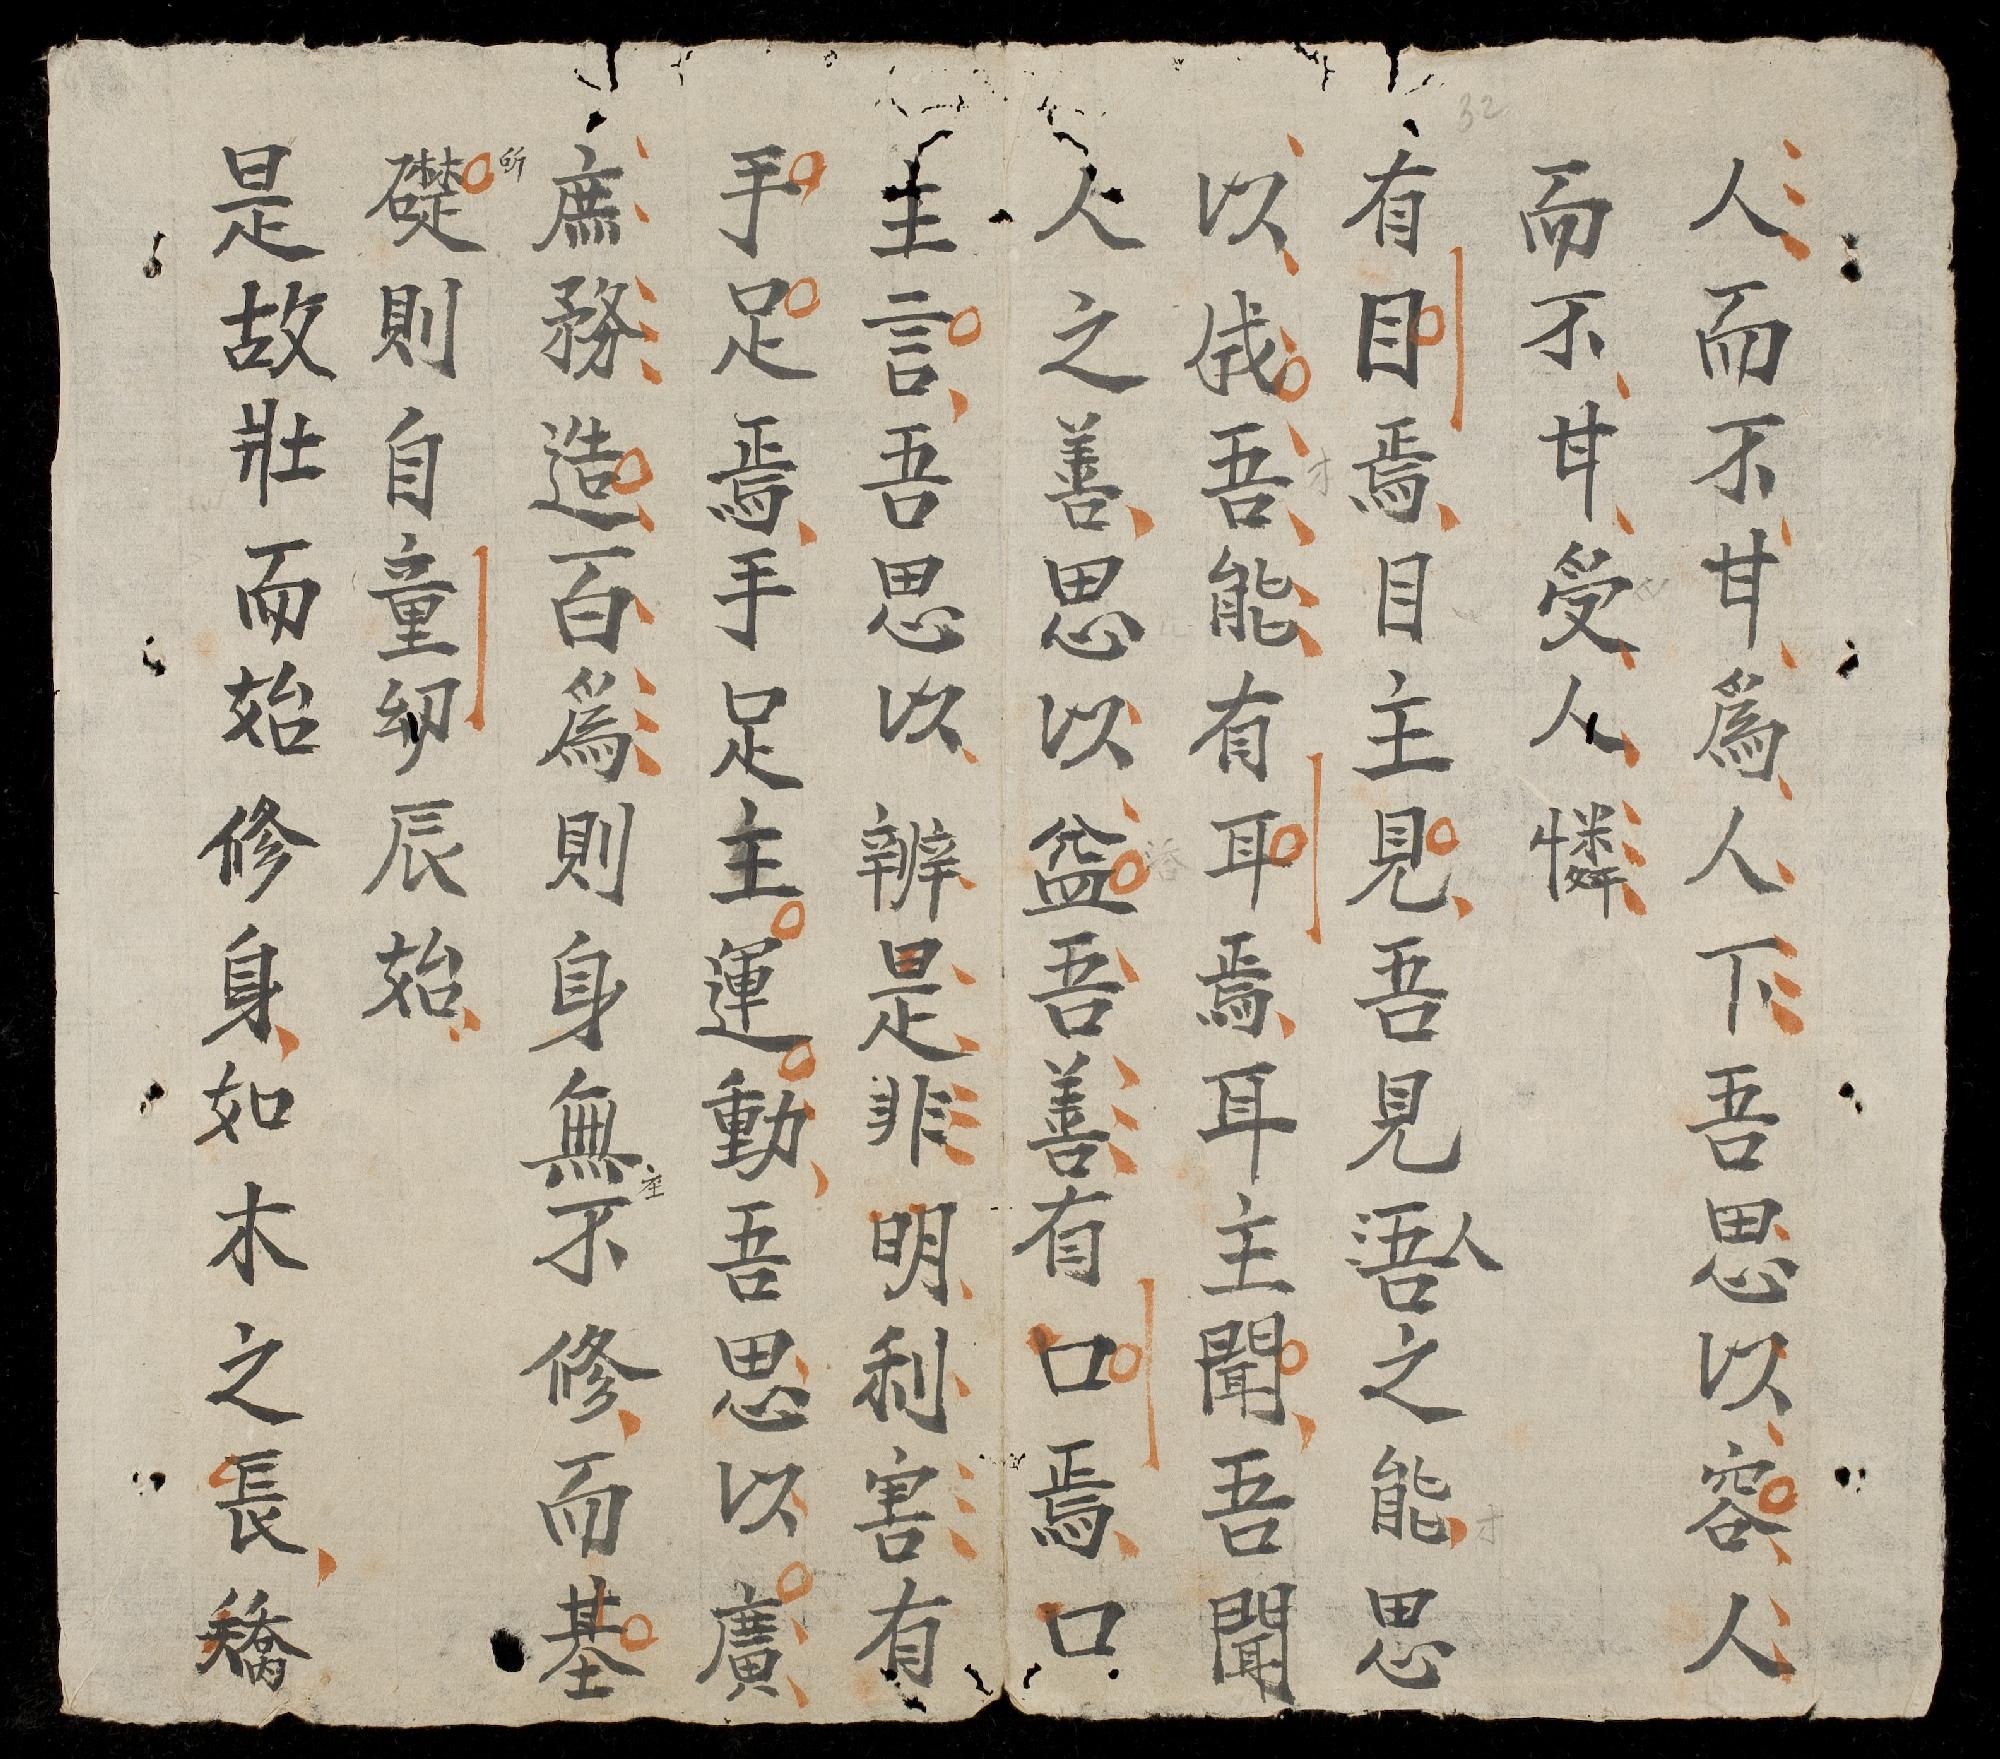 人而不甘爲人下吾思以容人
而不甘受人憐
有目焉目主見吾見吾人之能思
以成吾能有耳焉耳主聞吾聞
人之善思以益吾善有口焉口
主言吾思以辨是非明利害有
手足焉手足主運動吾思以廣
庶務造百爲則身無不修而基
所
礎則自童幼辰始
是故壯而始修身如木之長矯
32